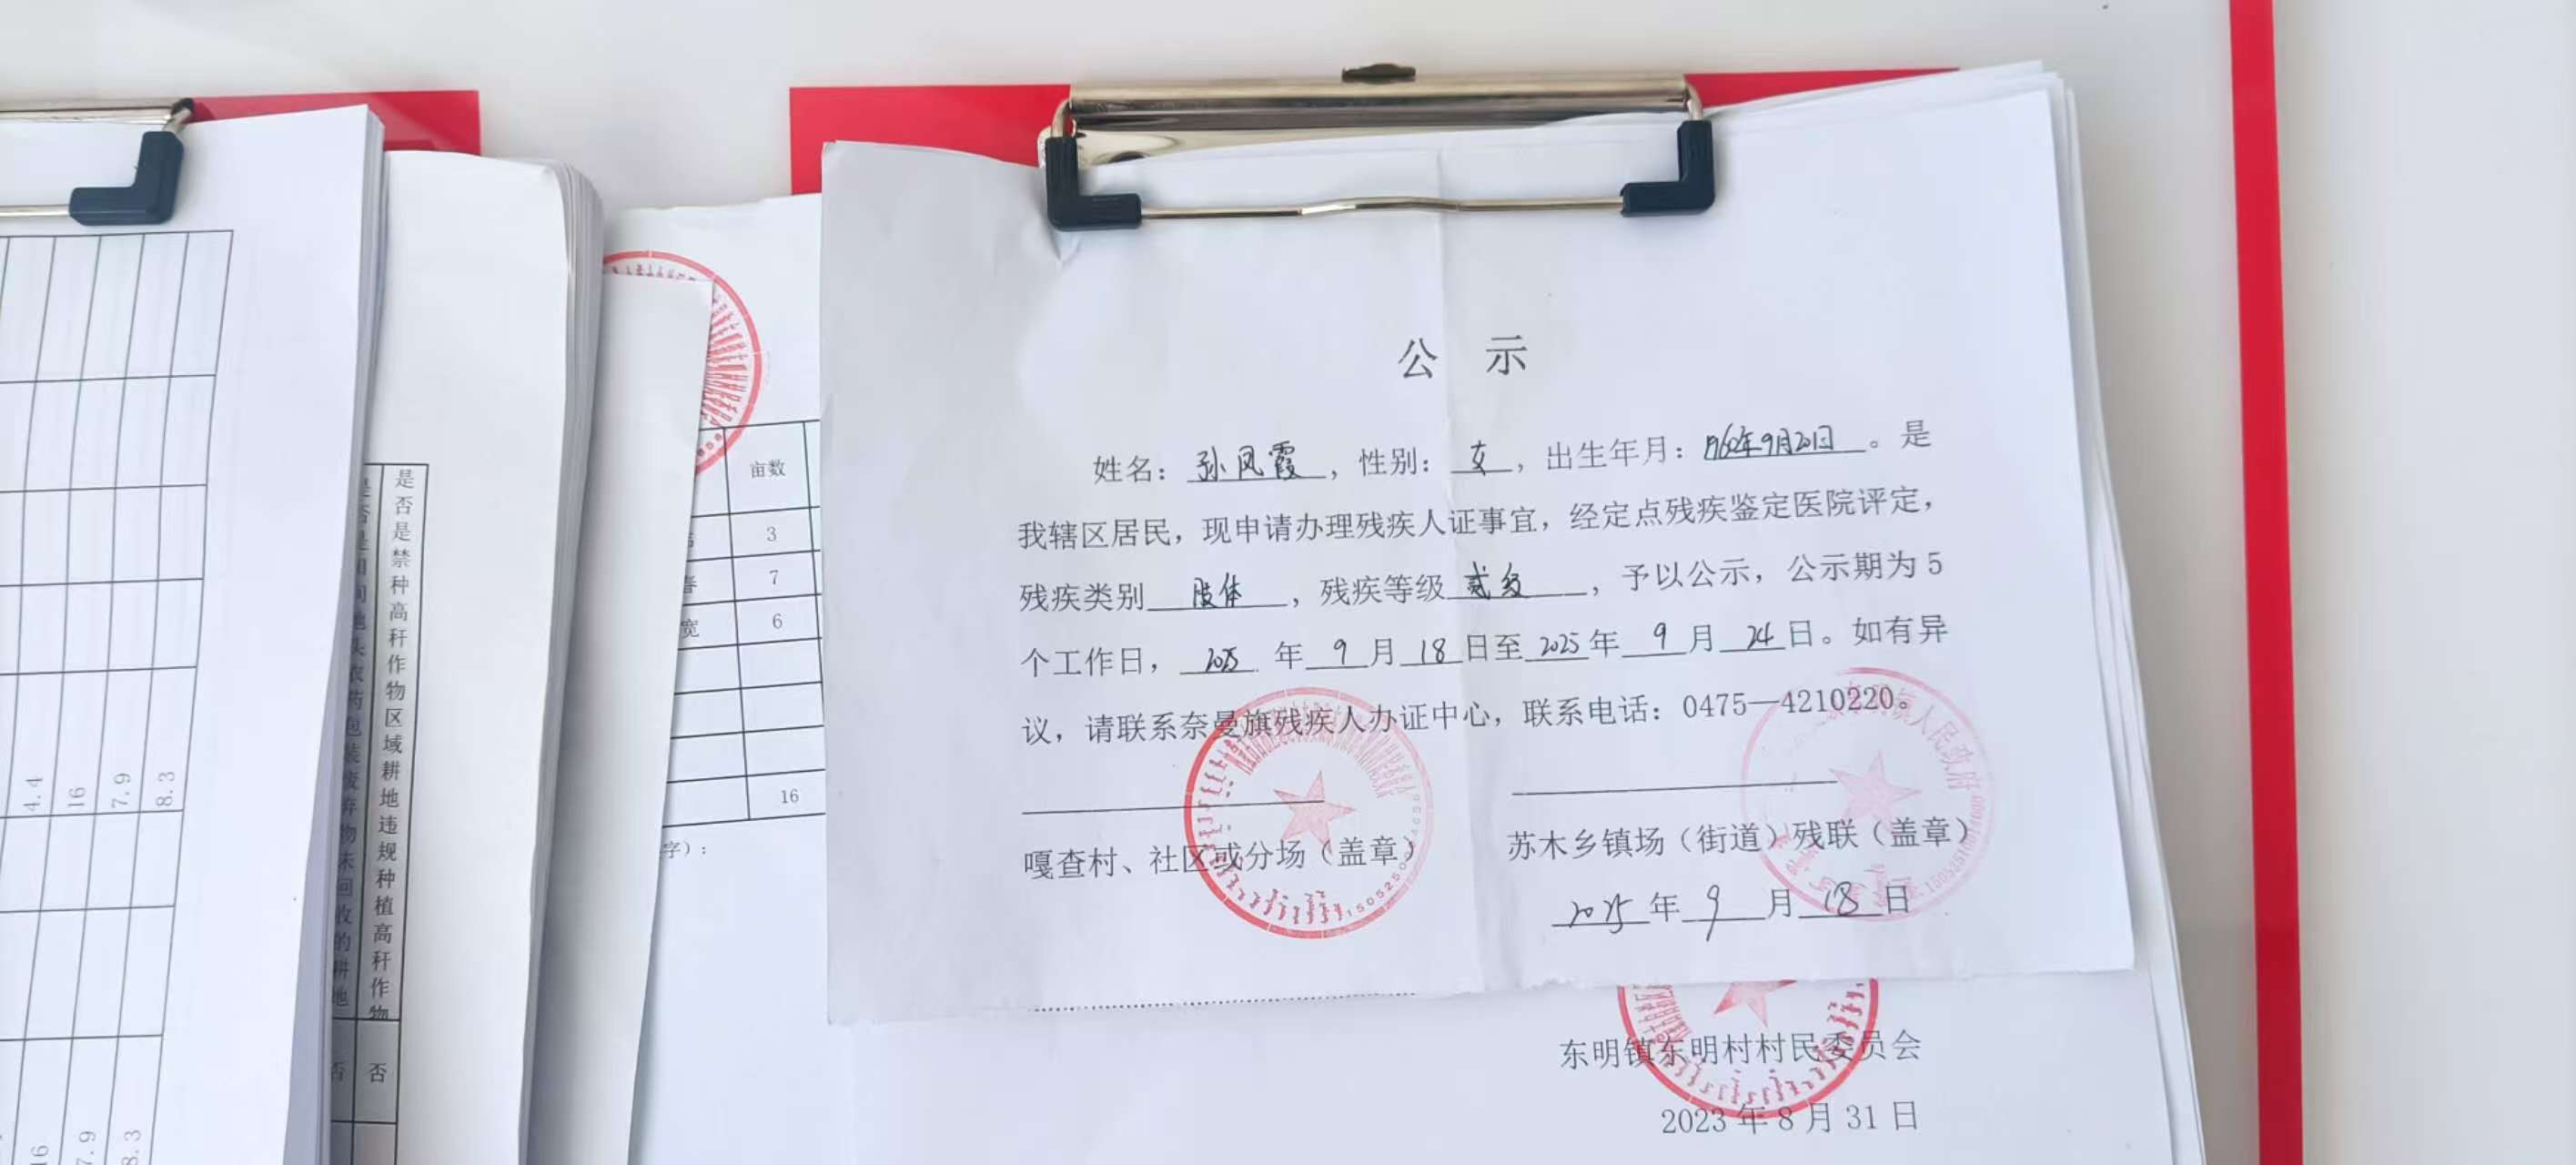 公 示
姓名：孙凤霞，性别：女，出生年月：1960年9月20日。是
我辖区居民，现申请办理残疾人证事宜，经定点残疾鉴定医院评定，
残疾类别肢体，残疾等级贰级，予以公示，公示期为5
个工作日，2025年9月18日至2025年9月24日。如有异
议，请联系奈曼旗残疾人办证中心，联系电话：0475—4210220。
嘎查村、社区或分场（盖章）
苏木乡镇场（街道）残联（盖章）
2025年9月18日
东明镇东明村村民委员会
2023年8月31日
亩数
3
7
6
16
春
宽
字）：
是否是禁种高秆作物区域耕地违规种植高秆作物
否
否
4.4
16
7.9
8.3
16
7.9
8.3
人民政府